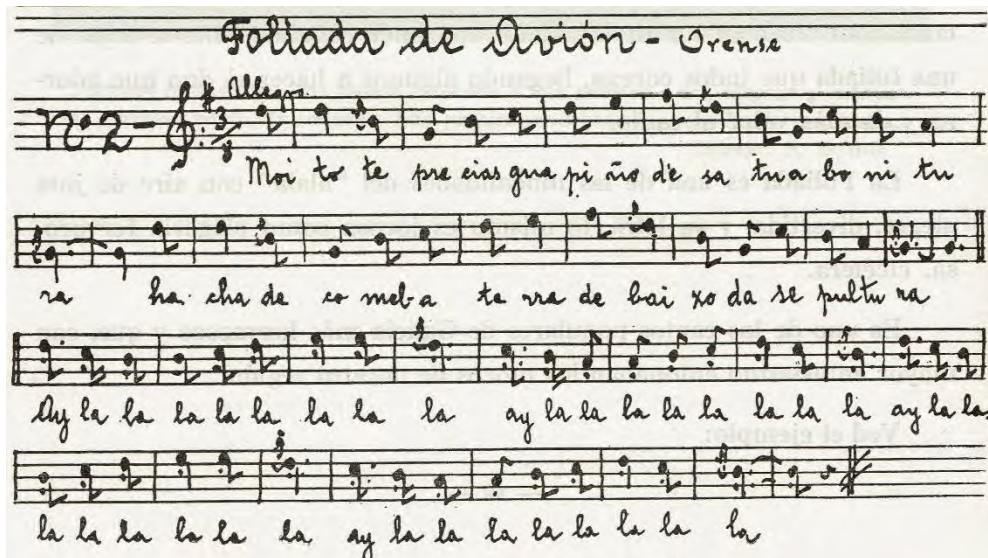 Foliada de Avión - Orense
Nº 2 - Allegro. 3/8
Moi to te pre cias gua pi ño de sa tua bo ni tu
ra ha cha de co mel-a te rra de bai xo da se pultu ra
Ay la la la la la la la la ay la la la la la la la la ay la la
la la la la la la ay la la la la la la la la